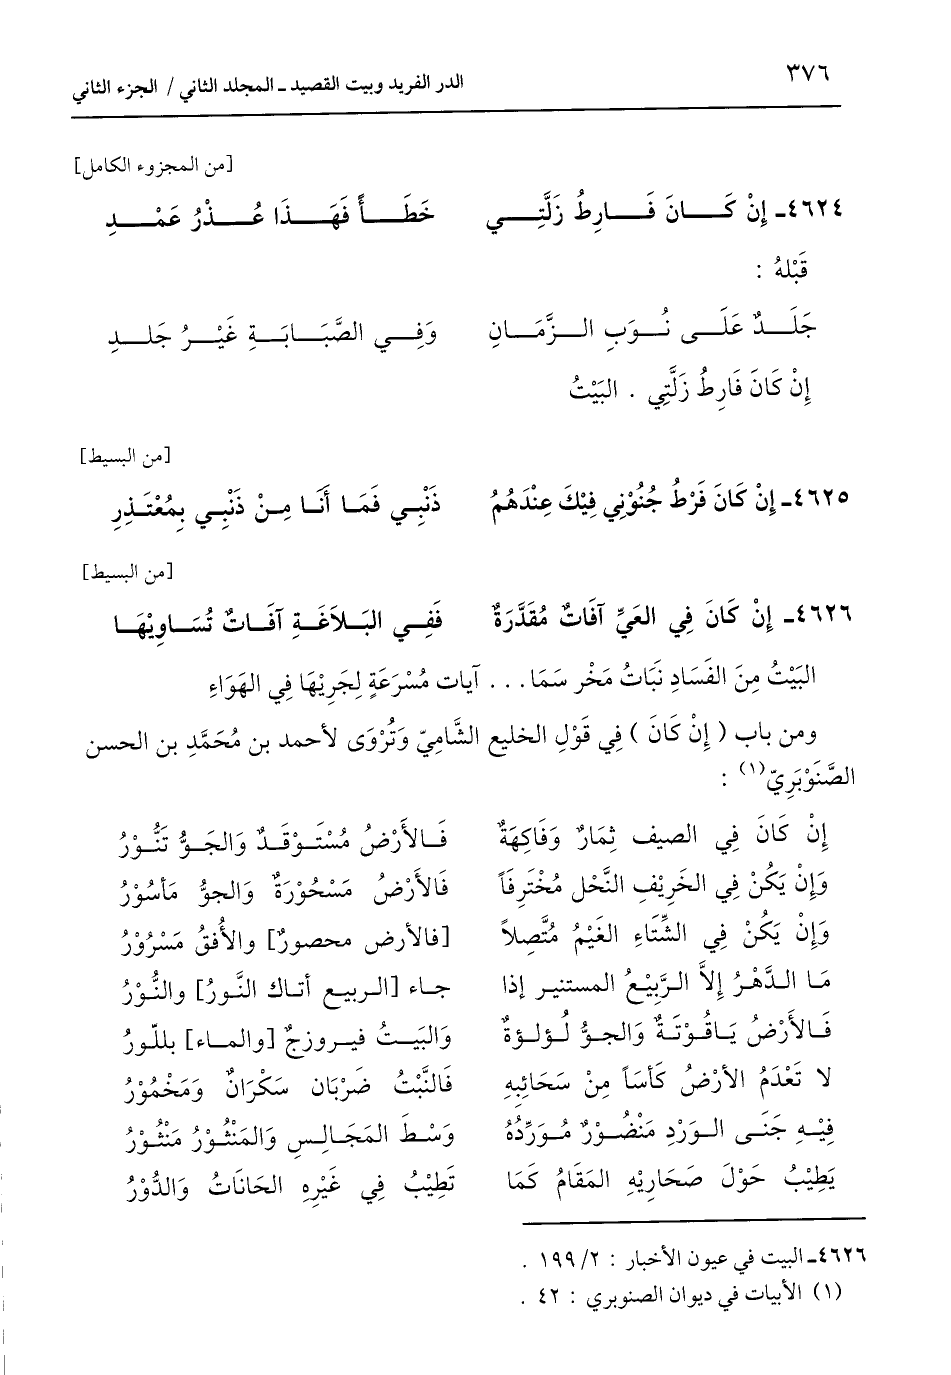 ٣٧٦
الدر الفريد وبيت القصيد ـ المجلد الثاني / الجزء الثاني
[من المجزوء الكامل]
٤٦٢٤ـ إِنْ كَـــانَ فَـــارِطُ زَلَّتِـــي خَطَـــأً فَهَـــذَا عُـــذْرُ عَمْـــدِ
قَبْلهُ :
جَلَـــدٌ عَلَـــى نُـــوَبِ الـــزَّمَـــانِ وَفِـــي الصَّبَـــابَـــةِ غَيْـــرُ جَلـــدِ
إِنْ كَانَ فَارِطُ زَلَّتِي . البَيْتُ
[من البسيط]
٤٦٢٥ـ إِنْ كَانَ فَرْطُ جُنُوْنِي فِيْكَ عِنْدَهُمُ ذَنْبِـي فَمَـا أَنَـا مِـنْ ذَنْبِـي بِمُعْتَـذِرِ
[من البسيط]
٤٦٢٦ـ إِنْ كَانَ فِي العَيِّ آفَاتٌ مُقَدَّرَةٌ فَفِـي البَـلاَغَـةِ آفَـاتٌ تُسَـاوِيْهَـا
البَيْتُ مِنَ الفَسَادِ نَبَاتُ مَخْر سَمَا... آيات مُسْرَعَةٍ لِجَرِيْهَا فِي الهَوَاءِ
ومن باب ( إِنْ كَانَ ) فِي قَوْلِ الخليع الشَّامِيّ وَتُرْوَى لأحمد بن مُحَمَّدِ بن الحسن
الصَّنَوْبَرِيّ(١) :
إِنْ كَانَ فِي الصيف ثِمَارٌ وَفَاكِهَةٌ فَـالأَرْضُ مُسْتَـوْقَـدٌ وَالجَـوُّ تَنُّـوْرُ
وَإِنْ يَكُنْ فِي الخَرِيْفِ النَّحْل مُخْتَرِفَاً فَالأَرْضُ مَسْحُوْرَةٌ وَالجوُّ مَأسُوْرُ
وَإِنْ يَكُنْ فِي الشِّتَاءِ الغَيْمُ مُتَّصِلاً [فالأرض محصورٌ] والأُفقُ مَسْرُوْرُ
مَا الـدَّهْـرُ إِلاَّ الـرَّبِيْـعُ المستنيـر إذا جـاء [الـربيـع أتـاك النَّـورُ] والنُّـوْرُ
فَـالأَرْضُ يَـاقُـوْتَـةٌ وَالجـوُّ لُـؤلُـؤةٌ وَالبَيـتُ فيـروزجٌ [والمـاء] بللّورُ
لا تَعْدَمُ الأرْضُ كَأسَاً مِنْ سَحَائِبِهِ فَالنَّبْتُ ضَرْبَان سَكْرَانٌ وَمَخْمُوْرُ
فِيْـهِ جَنَـى الـوَرْدِ مَنْضُـوْرٌ مُـوَرِّدُهُ وَسْـطَ المَجَـالِـسِ وَالمَنْثُـوْرُ مَنْثُـوْرُ
يَطِيْبُ حَوْلَ صَحَارِيْهِ المَقَامُ كَمَا تَطِيْبُ فِي غَيْرِهِ الحَانَاتُ وَالدُّوْرُ
٤٦٢٦ـ البيت في عيون الأخبار : ٢/ ١٩٩ .
(١) الأبيات في ديوان الصنوبري : ٤٢ .